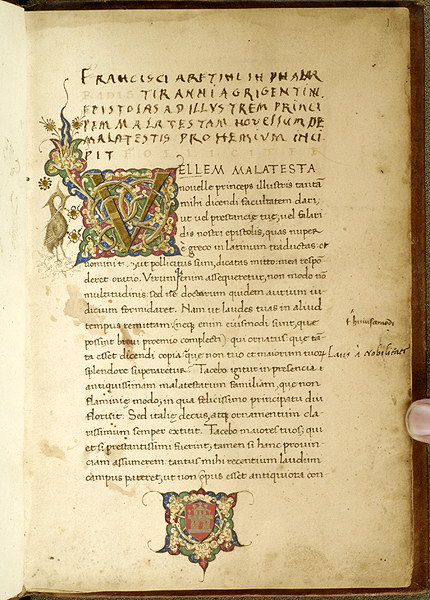 1
FRANCISCI ARETINI IN PHALAR
TIRANNI AGRIGENTINI
EPISTOLAS AD ILLUSTREM PRINCI
PEM MALATESTAM NOVELLUM DE
MALATESTIS PROHEMIUM INCI
PIT
VELLEM MALATESTA
nouelle princeps illustris tantā
mihi dicendi facultatem dari,
ut uel prestantie tuę, uel falari
dis nostri epistolis, quas nuper
e greco in latinum traductas: et
nomini tuo ut pollicitus sum, dicatas mitto: men respō
deret oratio. Utrum enim assequeretur, non modo nō
multitudinis: sed ne doctarum quidem aurium iu
dicium formidaret. Nam ut laudes tuas in aliud
tempus remittam: (neque enim eiusmodi sunt, que
possint breui proemio complecti) qui ornatus que tā
ta esset dicendi copia que non tuo et maiorum tuorꝫ
splendore superaretur. Tacebo igitur in presencia
antiquissimam malatestarum familiam, que non
flaminię modo, in qua felicissimo principatu diu
floruit: Sed italię decus, atque ornamentum cla
rissimum semper extitit. Tacebo maiores tuos; qui
et si prestantissimi fuerint, tamen si hanc prouin
ciam assumerem tantus mihi recentium laudum
campus pateret, ut non opus esset antiquora con
huiuscemodi
Laus a Nobilitate